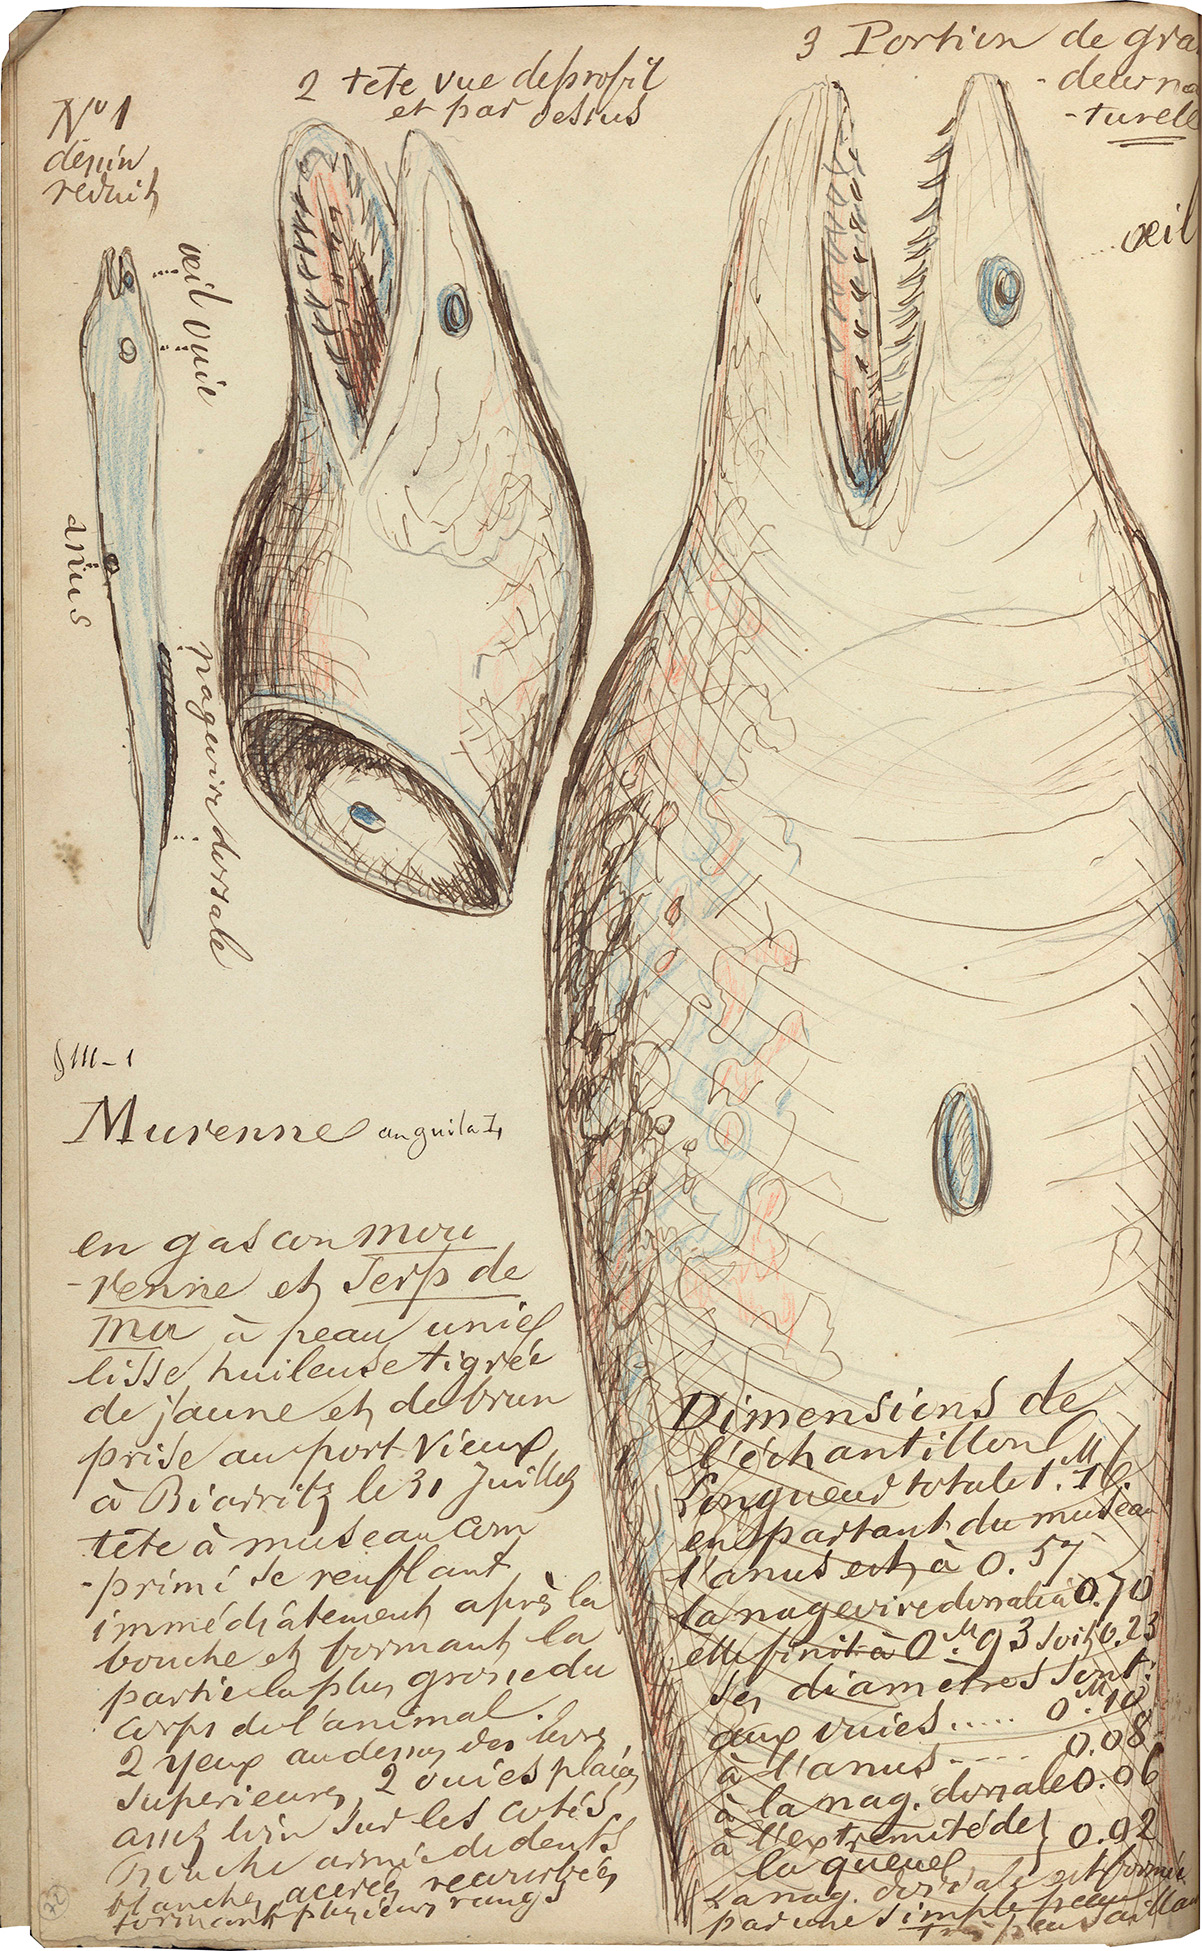 Nº 1
dessin
reduit
2 tete vue de profil
et par dessus
3 Portion de gra
-deur na
-turelle
œil
œil
ouie
anus
nageoire dorsale
§ III - 1
Murenne anguila L
en gascon mou
-renne et Serp de
mar à peau unie
lisse huileuse tigrée
de jaune et de brun
prise au port Vieux
à Biarritz le 31 Juillet
tête à museau com
-primé se renflant
immédiâtement après la
bouche et formant la
partie la plus grosse du
corps de l'animal.
2 yeux au dessus des levres
superieures, 2 ouies placées
assez loin sur les cotés
Bouche armée de dents
blanches acerées recourbées
formant plusieurs rangs
Dimensions de
l'échantillon
Longueur totale 1.M16
en partant du museau
l'anus est à 0.57
la nageoire dorsale à 0.70
elle finit à 0.M93 soit 0.23
ses diamètres sont
aux ouies ..... 0.M10
à l'anus ..... 0.08
à la nag. dorsale 0.06
à l'extremité de } 0.02
la queue
La nag. dorsale est formée
par une simple peau
très peu saillante
22